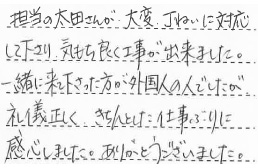 担当の太田さんが大変、丁ねいに対応
して下さり、気もち良く工事が出来ました。
一緒に来て下さった方が外国人の人でしたが
礼義正しく、きちんとした仕事ぶりに
感心しました。ありがとうございました。